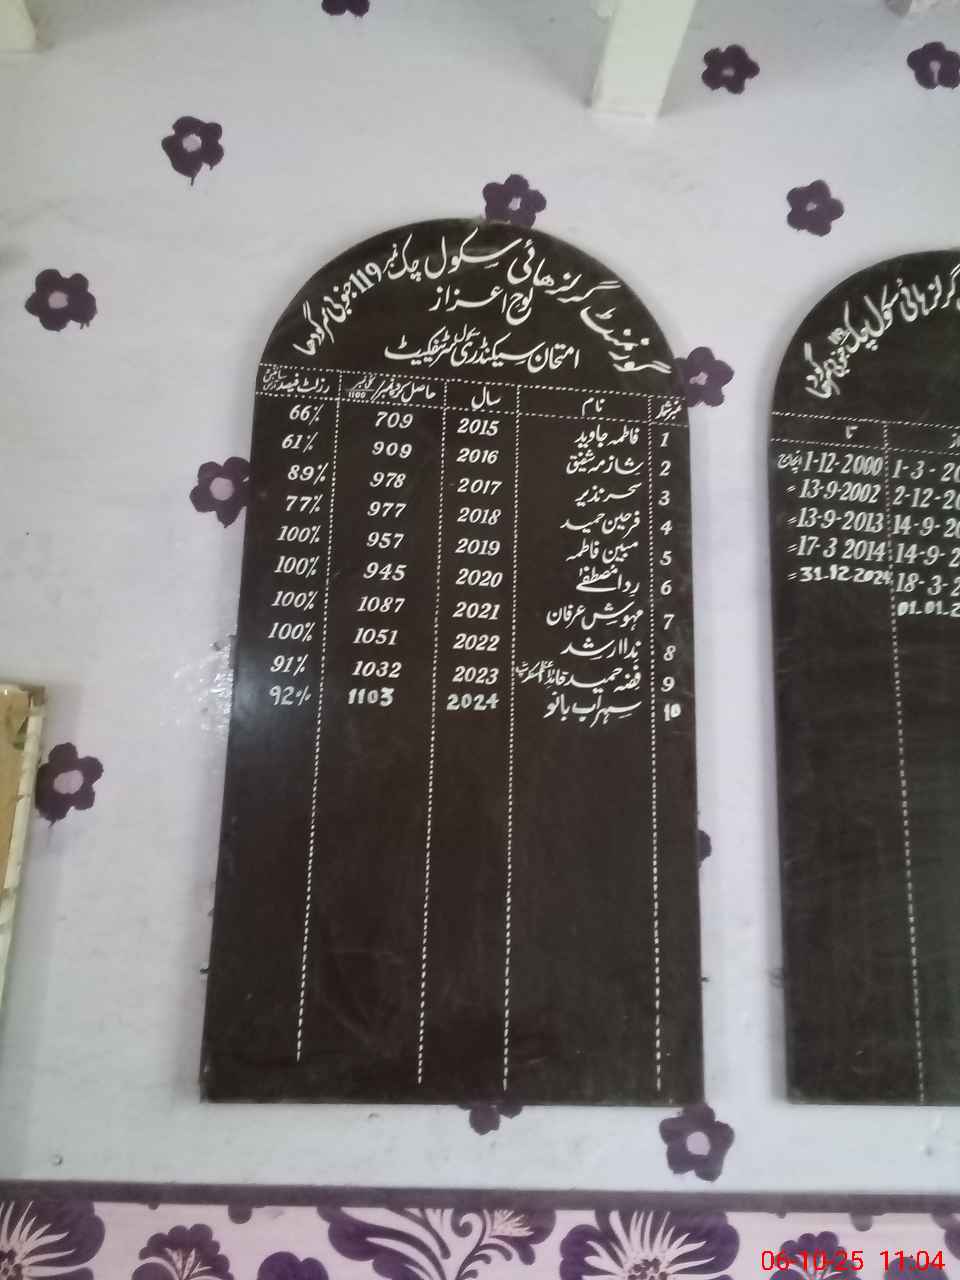 گورنمنٹ گرلز ھائی سکول چک نمبر 119 جنوبی سرگودھا
لوح اعزاز
امتحان سیکنڈری سکول سرٹیفکیٹ
نمبر شمار نام سال حاصل کردہ نمبر/کل نمبر 1100 رزلٹ فیصد
1 فاطمہ جاوید 2015 709 66%
2 شازمہ شفیق 2016 909 61%
3 سحر نذیر 2017 978 89%
4 فرحین حمید 2018 977 77%
5 مبین فاطمہ 2019 957 100%
6 ردا مصطفےٰ 2020 945 100%
7 مہوش عرفان 2021 1087 100%
8 ندا ارشد 2022 1051 100%
9 فضہ حمید 2023 1032 91%
10 سہراب بانو 2024 1103 92%
گرلز ہائی سکول چک 119 جنوبی سرگودھا
تا
1-3-20 1-12-2000 انچارج
2-12-2 13-9-2002 =
14-9-20 13-9-2013 =
14-9-2 17-3 2014 =
18-3-2 31.12.2024 =
01.01.2
06-10-25 11:04